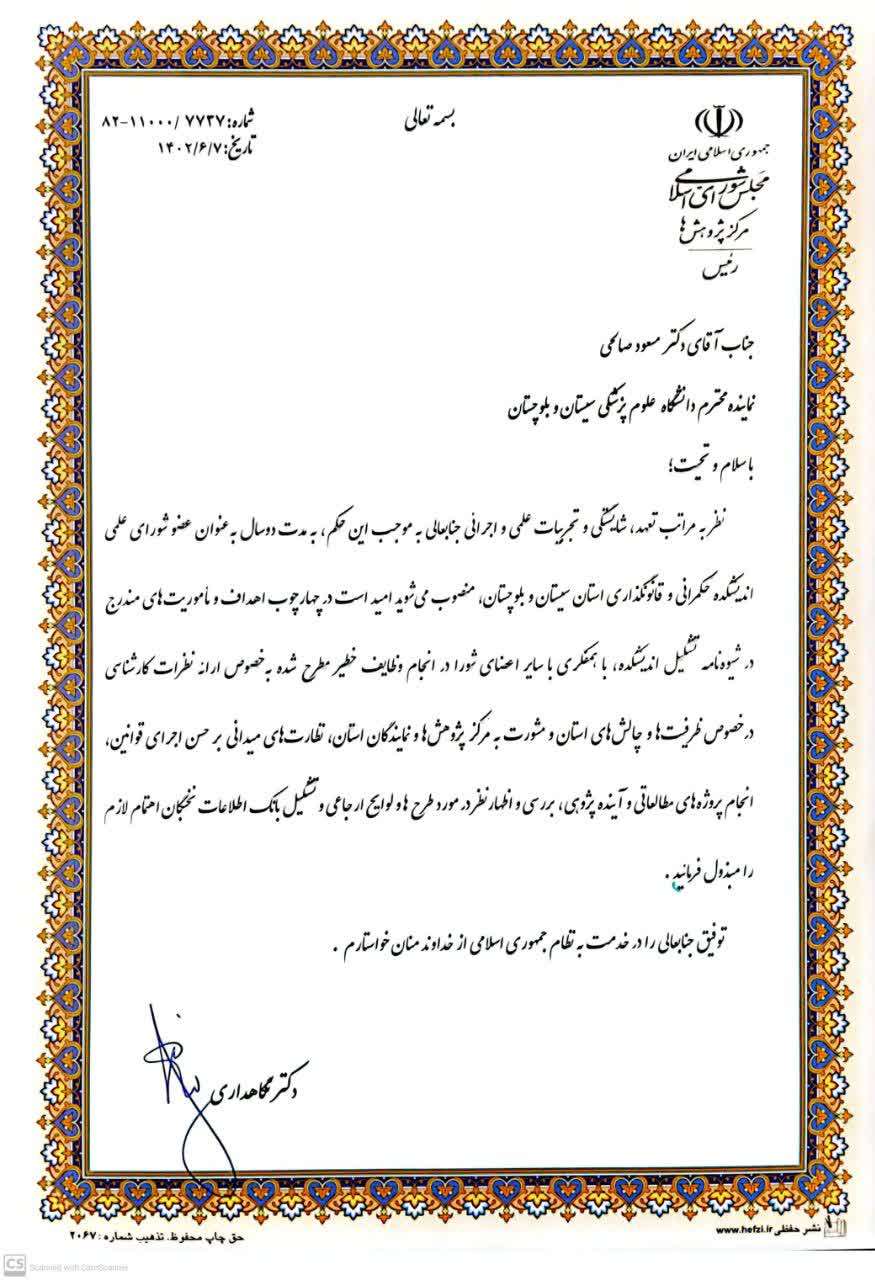 بسمه تعالی
جمهوری اسلامی ایران
مجلس شورای اسلامی
مرکز پژوهش‌ها
رئیس
شماره: ۷۷۳۷ /۱۱۰۰۰-۸۲
تاریخ: ۱۴۰۲/۶/۷
جناب آقای دکتر مسعود صالحی
نماینده محترم دانشگاه علوم پزشکی سیستان و بلوچستان
با سلام و تحیت؛
نظر به مراتب تعهد، شایستگی و تجربیات علمی و اجرائی جنابعالی به موجب این حکم، به مدت دوسال به عنوان عضو شورای علمی
اندیشکده حکمرانی و قانونگذاری استان سیستان و بلوچستان، منصوب می‌شوید امید است در چهارچوب اهداف و مأموریت‌های مندرج
در شیوه‌نامه تشکیل اندیشکده، با همفکری با سایر اعضای شورا در انجام وظایف خطیر مطرح شده به خصوص ارائه نظرات کارشناسی
در خصوص ظرفیت‌ها و چالش‌های استان و مشورت به مرکز پژوهش‌ها و نمایندگان استان، نظارت‌های میدانی بر حسن اجرای قوانین،
انجام پروژه‌های مطالعاتی و آینده پژوهی، بررسی و اظهار نظر در مورد طرح ها و لوایح ارجاعی و تشکیل بانک اطلاعات نخبگان اهتمام لازم
را مبذول فرمائید.
توفیق جنابعالی را در خدمت به نظام جمهوری اسلامی از خداوند منان خواستارم .
دکتر نگاهداری
نشر حفظی www.hefzi.ir
حق چاپ محفوظ. تذهیب شماره: ۲۰۶۷
CS Scanned with CamScanner